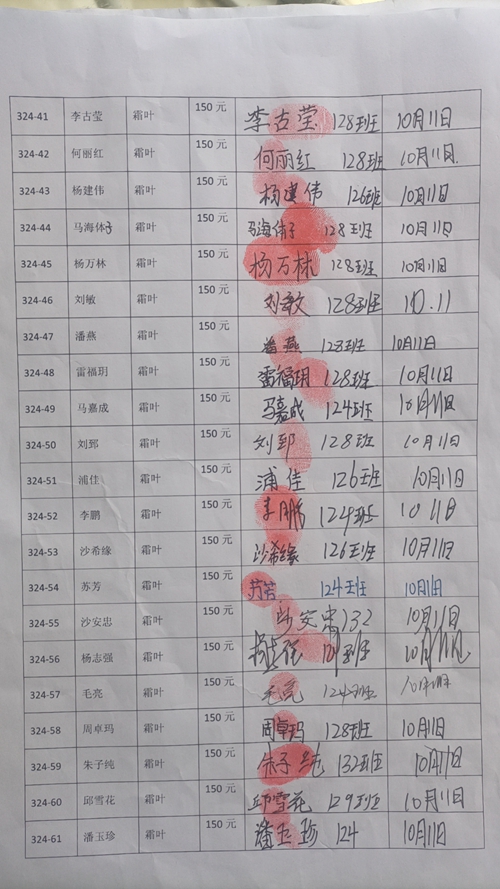 324-41 李古莹 霜叶 150 元 李古莹 128班 10月11日
324-42 何丽红 霜叶 150 元 何丽红 128班 10月11日.
324-43 杨建伟 霜叶 150 元 杨建伟 126班 10月11日
324-44 马海体子 霜叶 150 元 马海体子 128班 10月11日
324-45 杨万林 霜叶 150 元 杨万林 128班 10月11日
324-46 刘敏 霜叶 150 元 刘敏 128班 10.11
324-47 潘燕 霜叶 150 元 潘燕 128班 10月11日
324-48 雷福玥 霜叶 150 元 雷福玥 128班 10月11日
324-49 马嘉成 霜叶 150 元 马嘉成 124班 10月11日
324-50 刘郅 霜叶 150 元 刘郅 128班 10月11日
324-51 浦佳 霜叶 150 元 浦佳 126班 10月11日
324-52 李鹏 霜叶 150 元 李鹏 124班 10月11日
324-53 沙希缘 霜叶 150 元 沙希缘 126班 10月11日
324-54 苏芳 霜叶 150 元 苏芳 124班 10月11日
324-55 沙安忠 霜叶 150 元 沙安忠 132 10月11日
324-56 杨志强 霜叶 150 元 杨志强 10月11日
324-57 毛亮 霜叶 150 元 毛亮 124班
324-58 周卓玛 霜叶 150 元 周卓玛 128班 10月11日
324-59 朱子纯 霜叶 150 元 朱子纯 132班 10月11日
324-60 邱雪花 霜叶 150 元 邱雪花 129班 10月11日
324-61 潘玉珍 霜叶 150 元 潘玉珍 124 10月11日